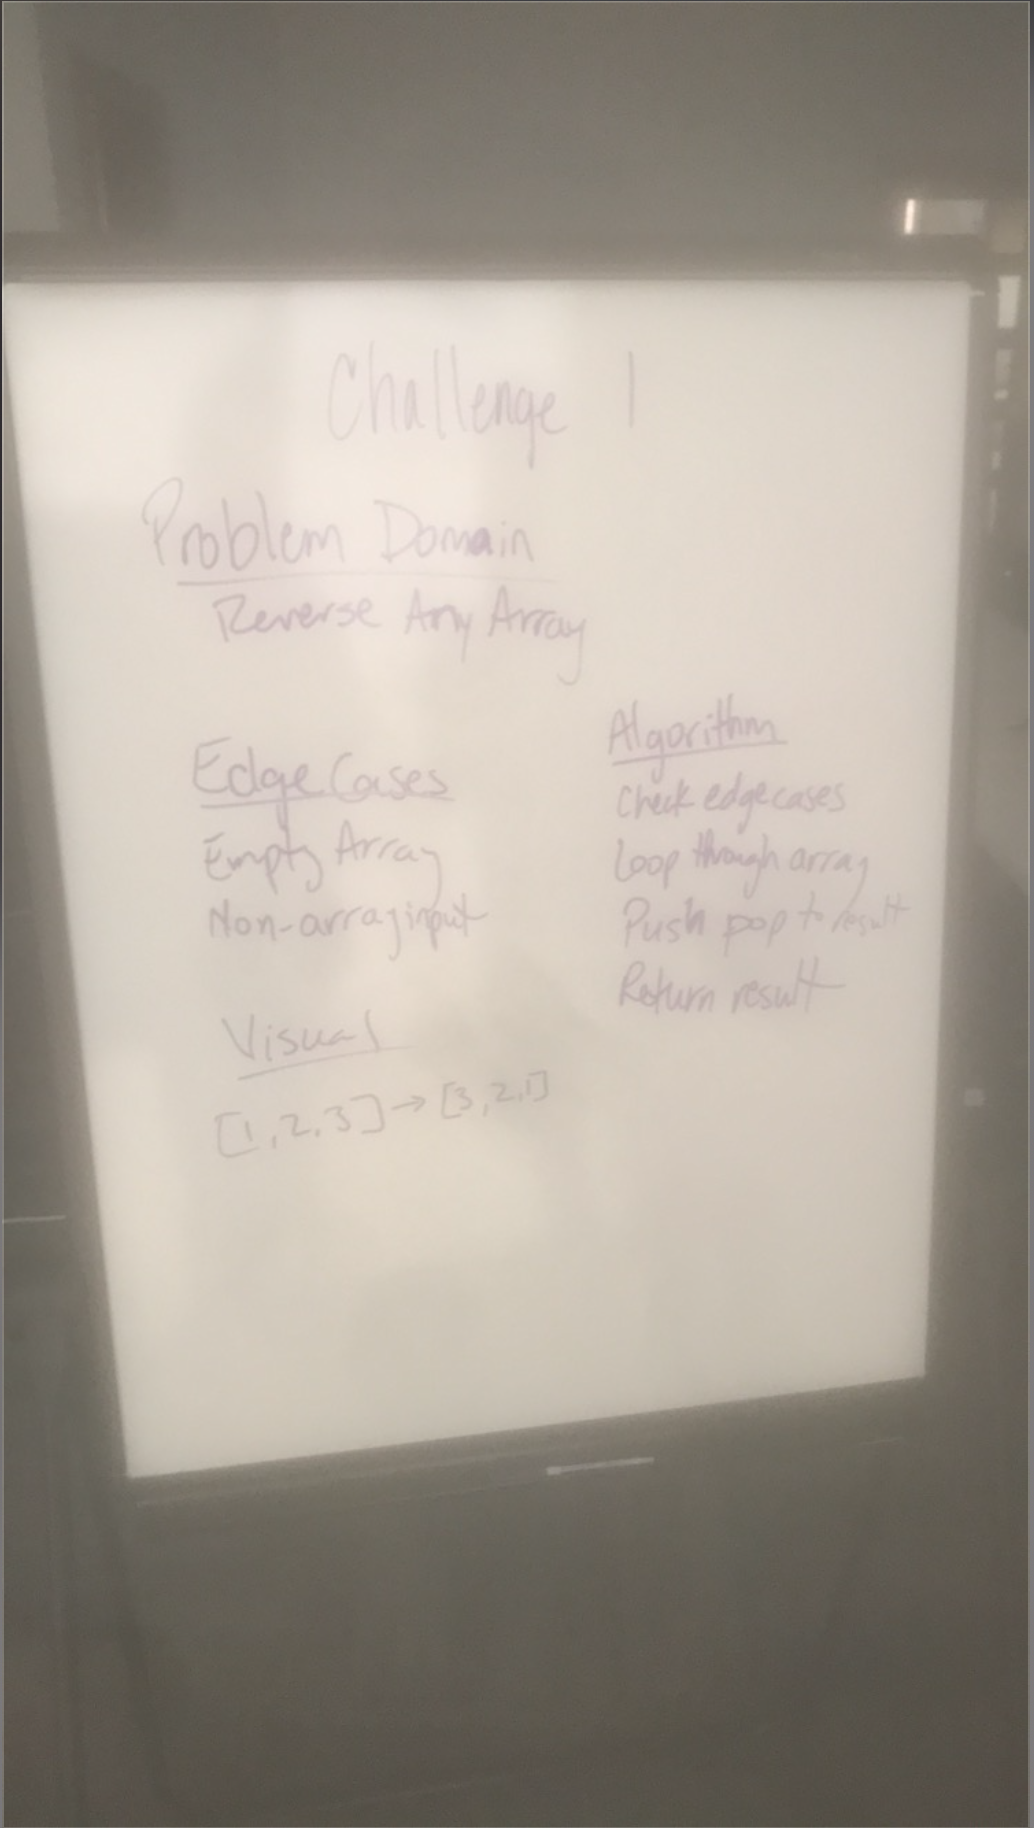 Challenge 1
Problem Domain
Reverse Any Array
Edge Cases
Empty Array
Non-array input
Visual
[1,2,3]→[3,2,1]
Algorithm
Check edge cases
Loop through array
Push pop to result
Return result